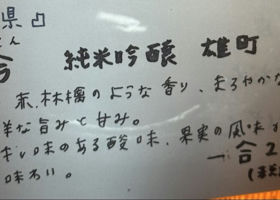 県
ん
合 純米吟醸 雄町
赤林檎のような香り、まろやかな
旨みと甘み。
味のある酸味、果実の風味
味わい。
一合2